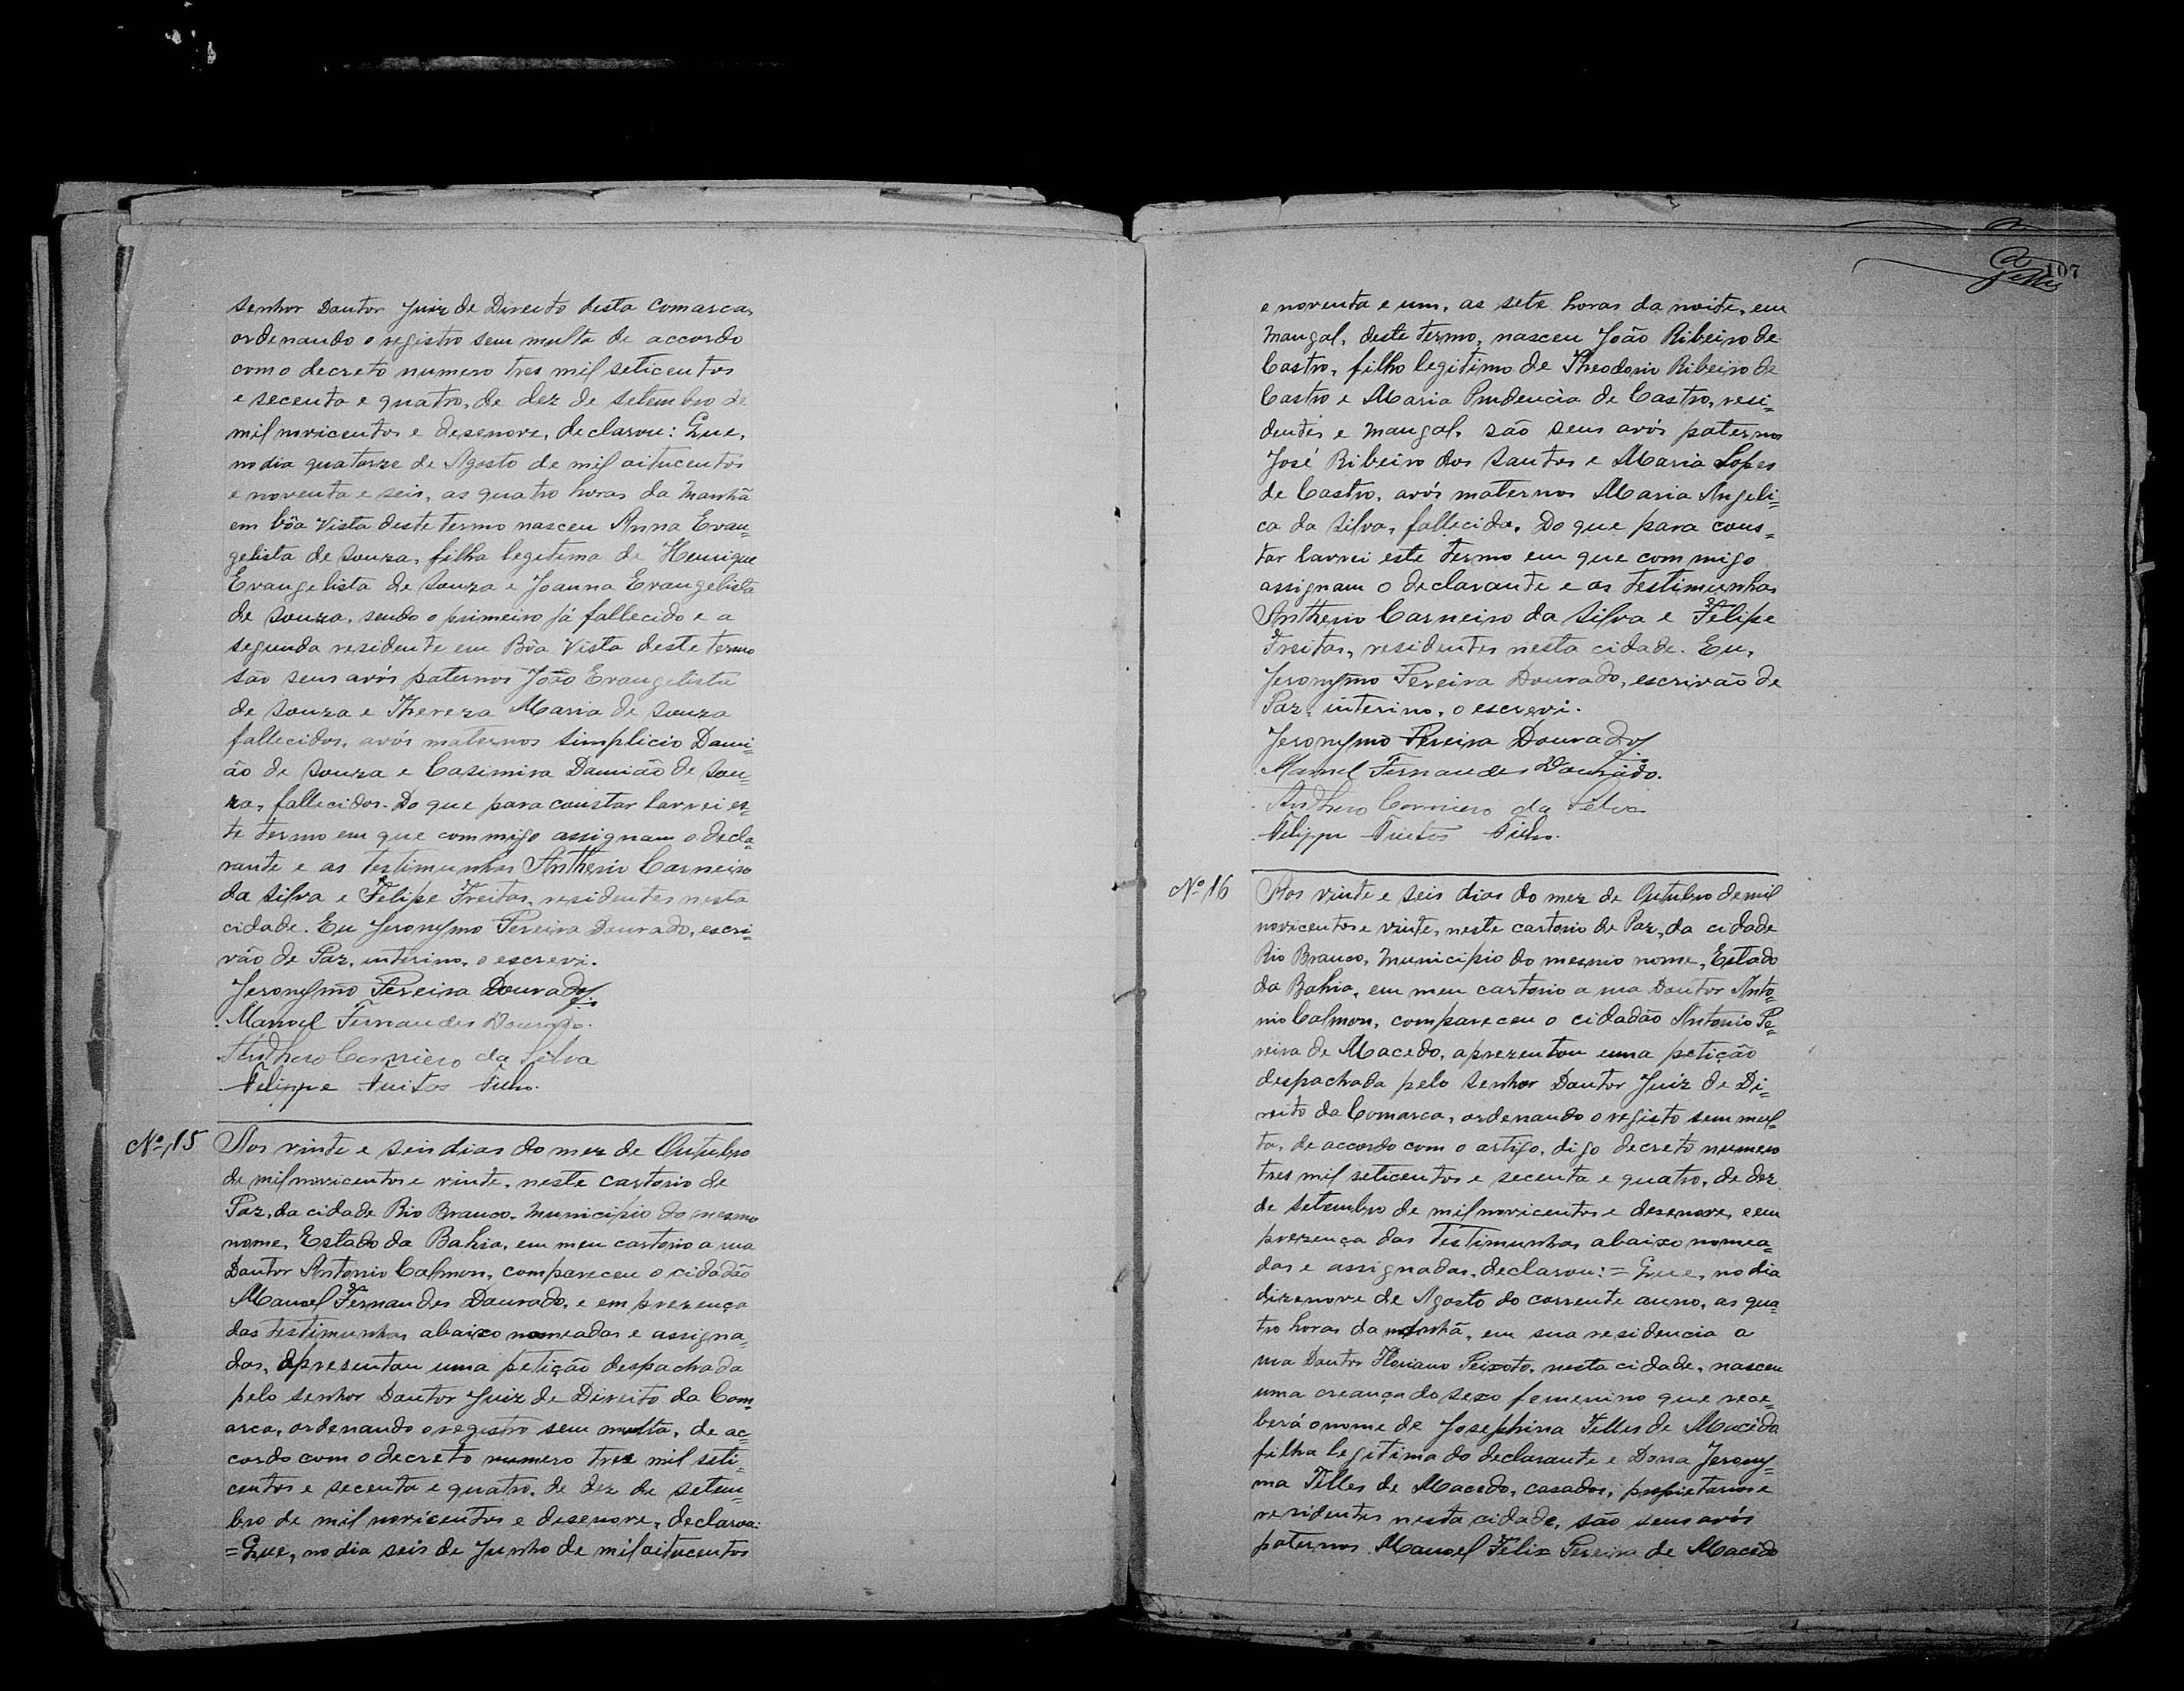 senhor Doutor Juiz de Direito desta Comarca,
ordenando o registro sem multa de accordo
com o decreto numero tres mil seticentos
e secenta e quatro, de dez de setembro de
mil noricentos e desenove, declarou: Que,
no dia quatorze de Agosto de mil oitucentos
e noventa e seis, as quatro horas da manhã
em bôa Vista deste termo nasceu Anna Evan=
gelista de Souza, filha legitima de Henrique
Evangelista de Souza e Joanna Evangelista
de Souza, sendo o primeiro já fallecido e a
segunda residente em Bôa Vista deste termo
são seus avós paternos João Evangelista
de Souza e Thereza Maria de Souza
fallecidos, avós maternos Simplicio Dami=
ão de Souza e Casimira Damião de Sou=
za, fallecidos. Do que para constar lavrei es=
te termo em que commigo assignam o decla=
rante e as testimunhas Antherio Carneiro
da Silva e Felipe Freitas, residentes nesta
cidade. Eu Jeronymo Pereira Dourado, escri=
vão de Paz, interino, o escrevi.
Jeronymo Pereira Dourado
Manoel Fernandes Dourado.
Anthero Carneiro da Silva
Felippe Freitas Filho.
Nº 15 Aos vinte e seis dias do mez de Outubro
de mil noricentos e vinte, neste cartorio de
Paz, da cidade Rio Branco, municipio do mesmo
nome, Estado da Bahia, em meu cartorio a rua
Doutor Antonio Calmon, compareceu o cidadão
Manoel Fernandes Dourado, e em prezença
das testimunhas abaixo nomeadas e assigna=
das, apresentou uma petição despachada
pelo senhor Doutor Juiz de Direito da Com=
arca, ordenando o registro sem multa, de ac=
cordo com o decreto numero trez mil seti=
centos e secenta e quatro, de dez de setem=
bro de mil noricentos e desenove, declarou:
=Que, no dia seis de Junho de mil oitucentos
107
e noventa e um, as sete horas da noite, em
Mangal, deste termo, nasceu João Ribeiro de
Castro, filho legitimo de Theodorio Ribeiro de
Castro e Maria Prudencia de Castro, resi=
dentes e Mangal, são seus avós paternos
José Ribeiro dos Santos e Maria Lopes
de Castro, avós maternos Maria Angeli=
ca da Silva, fallecida. Do que para cons=
tar lavrei este termo em que commigo
assignam o declarante e as testimunhas
Antherio Carneiro da Silva e Felipe
Freitas, residentes nesta cidade. Eu,
Jeronymo Pereira Dourado, escrivão de
Paz, interino, o escrevi.
Jeronymo Pereira Dourado
Manoel Fernandes Dourado.
Anthero Carneiro da Silva
Felippe Freitas Filho.
Nº 16 Aos vinte e seis dias do mez de Outubro de mil
noricentos e vinte, neste cartorio de Paz, da cidade
Rio Branco, municipio do mesmo nome, Estado
da Bahia, em meu cartorio a rua Doutor Anto=
nio Calmon, compareceu o cidadão Antonio Pe=
reira de Macedo, aprezentou uma petição
despachada pelo senhor Doutor Juiz de Di=
reito da Comarca, ordenando o registo sem mul=
ta, de accordo com o artigo, digo decreto numero
tres mil seticentos e secenta e quatro, de dez
de setembro de mil noricentos e desenove, e em
prezença das testimunhas abaixo nomea=
das e assignadas, declarou: = Que, no dia
dizenove de Agosto do corrente anno, as qua=
tro horas da manhã, em sua residencia a
rua Doutor Floriano Peixoto, nesta cidade, nasceu
uma creança do sexo femenino que rece=
berá o nome de Josephina Telles de Macêdo
filha legitima do declarante e Dona Jerony=
ma Telles de Macedo, casados, propietarios e
residentes nesta cidade, são seus avós
paternos Manoel Felix Pereira de Macêdo